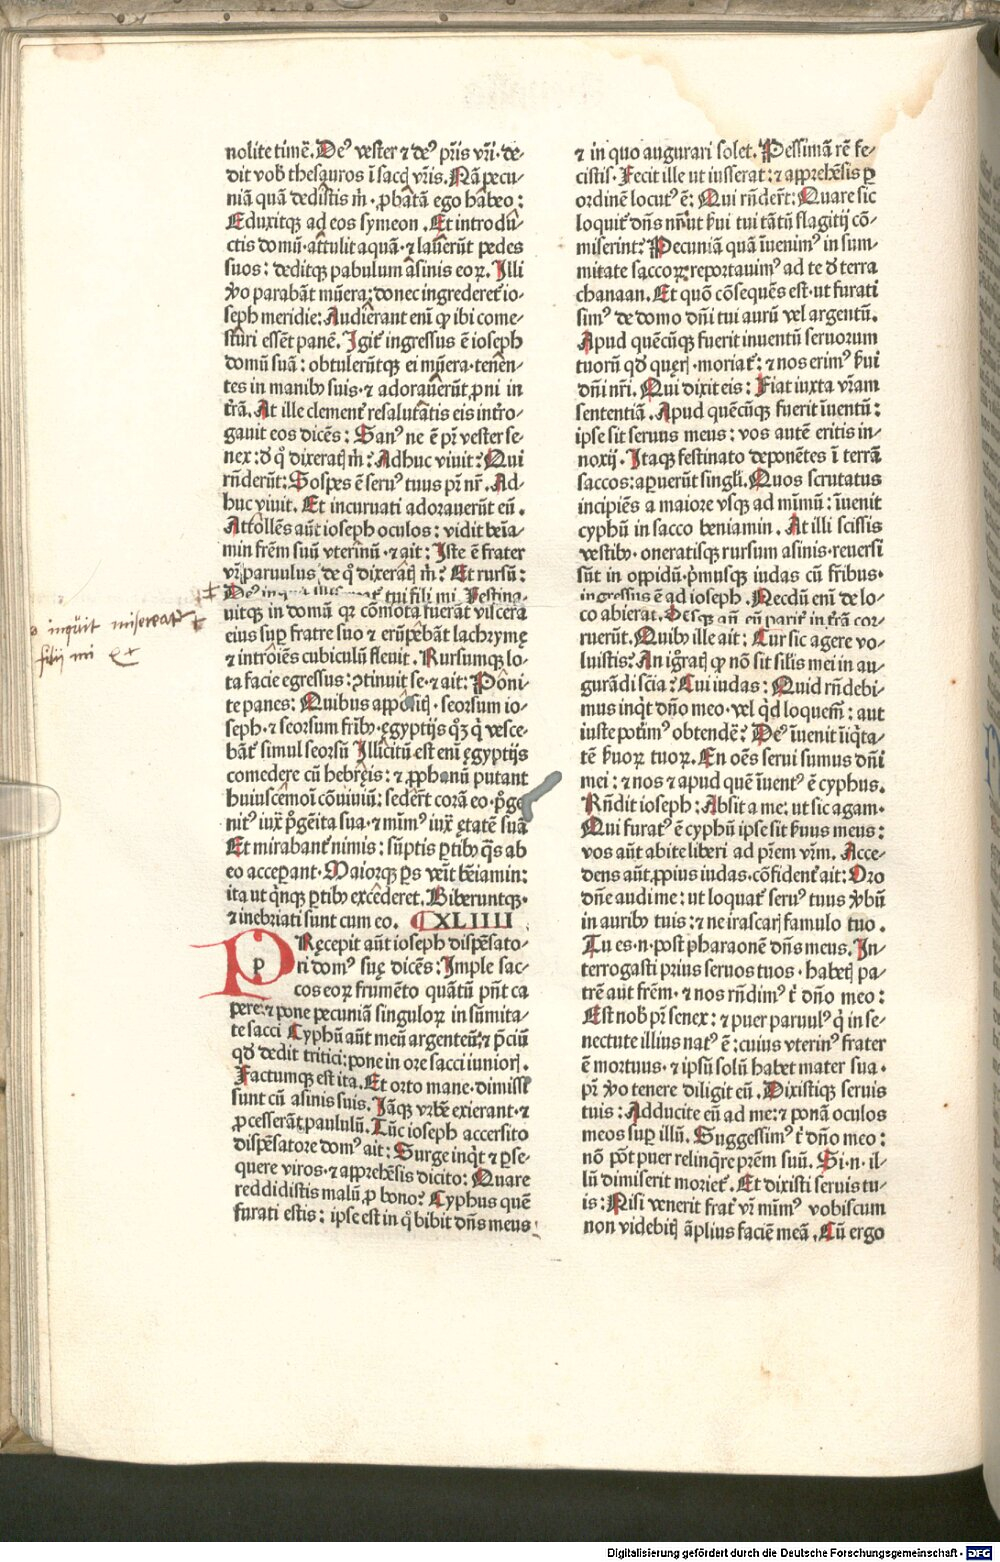 nolite timē. Deꝰ vester ⁊ deꝰ p̄ris vr̄i. de-
dit vob̄ thesauros ī sacc̨ vr̄is. Nā pecu-
niā quā dedistis m̄. ꝓbatā ego habeo:
Eduxitqꝫ ad eos symeon. Et introdu-
ctis domū. attulit aquā. ⁊ lauerūt pedes
suos: deditqꝫ pabulum asinis eoꝝ. Illi
ꝟo parabāt mūera: donec ingrederet̄ io-
seph meridie: Audierant eni ꝙ ibi come-
sturi essēt panē. Igit̄ ingressus ē ioseph
domū suā: obtulerūtqꝫ ei mūera. tenen-
tes in manibꝰ suis. ⁊ adorauerūt ꝓni in
tr̄ā. At ille clement̄ resalutatis eis intro-
gauit eos dicēs: Sanꝰ ne ē pr̄ vester se-
nex: ð q̄ dixeratꝭ m̄: Adhuc viuit: Qui
rn̄derūt: Sospes ē seruꝰ tuus pr̄ nr̄. Ad-
huc viuit. Et incuruati adorauerūt eū.
Attollēs aūt ioseph oculos: vidit benia-
min fr̄em suū vterinū. ⁊ ait: Iste ē frater
vr̄ paruulus de q̄ dixeratꝭ m̄? Et rursū:
tui fili mi. Festina-
uitqꝫ in domū qꝛ cōmota fuerāt viscera
eius suꝑ fratre suo ⁊ erūpebāt lachrymę
⁊ introiēs cubiculū fleuit. Rursumqꝫ lo-
ta facie egressus: ꝯtinuit se. ⁊ ait: Poni-
te panes: Quibus appositꝭ. seorsum io-
seph. ⁊ seorsum fr̄ibꝰ. egyptijs q̊ꝫ q̇ vesce-
bāt̄ simul seorsū Illicitū est eni ęgyptijs
comedere cū hebręis: ⁊ ꝓphanū putant
huiuscemōi cōuiuiū: sedert̄ corā eo. p̊ge
nitꝰ iux̄ p̊gēita sua. ⁊ mimꝰ iux̄ ętatē suā
Et mirabant̄ nimis: sūptis ꝑtibꝰ q̄s ab
eo acceꝑant. Maiorqꝫ ꝑs veīt beīamin:
ita ut qn̄qꝫ ꝑtibꝰ excederet. Biberuntqꝫ.
⁊ inebriati sunt cum eo. XLIIII
PRęcepit aūt ioseph dispēsato-
ri domꝰ suę dicēs: Imple sac-
cos eoꝝ frumēto quātū pn̄t ca
pere: ⁊ pone pecuniā singuloꝝ in sūmita-
te sacci Cyphū aūt meū argenteū: ⁊ p̄ciū
qð dedit tritici: pone in ore sacci iuniorꝭ.
Factumqꝫ est ita. Et orto mane. dimissi
sunt cū asinis suis. Iāqꝫ vrbē exierant. ⁊
ꝓcesserāt paululū. Tūc ioseph accersito
dispēsatore domꝰ ait: Surge inqͥt ⁊ ꝑse-
quere viros. ⁊ apprehēsis dicito: Quare
reddidistis malū ꝓ bono? Cyphus quē
furati estis: ipse est in q̊ bibit dn̄s meus:
inquit misereatur
filij mi ⁊c
⁊ in quo augurari solet. Pessimā rē fe-
cistis. Fecit ille ut iusserat: ⁊ apprehēsis ꝑ
ordinē locutꝰ ē: Qui rn̄dert̄: Quare sic
loquit̄ dn̄s nr̄: ut ẜui tui tātū flagitij cō-
miserint: Pecuniā quā īuenimꝰ in sum-
mitate saccoꝝ: reportauimꝰ ad te ð terra
chanaan. Et quō cōsequēs est. ut furati
simꝰ de domo dn̄i tui aurū vel argentū.
Apud quēcūqꝫ fuerit inuentū seruorum
tuorū qð quęrꝭ. moriat̄: ⁊ nos erimꝰ ẜui
dn̄i nr̄i. Qui dixit eis: Fiat iuxta vr̄am
sententiā. Apud quēcūqꝫ fuerit īuentū:
ipse sit seruus meus: vos autē eritis in-
noxij. Itaqꝫ festinato deponētes ī terrā
saccos: aꝑuerūt singli. Quos scrutatus
incipiēs a maiore vsqꝫ ad mīmū: īuenit
cyphū in sacco beniamin. At illi scissis
vestibꝰ. oneratisqꝫ rursum asinis. reuersi
sūt in oppidū. pͥmusqꝫ iudas cū fribus.
ingressus ē ad ioseph. Necdū eni de lo-
co abierat. Oēsqꝫ an̄ eū parit̄ in tr̄ā cor-
ruerūt. Quibꝰ ille ait: Cur sic agere vo-
luistis? An igratꝭ ꝙ nō sit silis mei in au-
gurādi scīa: Cui iudas: Quid rn̄debi-
mus inqͥt dn̄o meo. vel qͥd loquemͬ: aut
iuste potimꝰ obtendē? Deꝰ īuenit īiqͥta-
tē ẜuoꝝ tuoꝝ. En oēs serui sumus dn̄i
mei: ⁊ nos ⁊ apud quē īuentꝰ ē cyphus.
Rn̄dit ioseph: Absit a me: ut sic agam.
Qui furatꝰ ē cyphū ipse sit ẜuus meus:
vos aūt abite liberi ad pr̄em vr̄m. Acce-
dens aūt ꝓpius iudas. cōfident̄ ait: Oro
dn̄e audi me: ut loquat̄ seruꝰ tuus ꝟbū
in auribꝰ tuis: ⁊ ne irascarꝭ famulo tuo.
Tu es. n. post pharaonē dn̄s meus. In-
terrogasti prius seruos tuos. habetꝭ pa-
trē aut frēm. ⁊ nos rn̄dimꝰ t̄ dn̄o meo:
Est nob̄ pr̄ senex: ⁊ puer paruulꝰ q̇ in se-
nectute illius natꝰ ē: cuius vterinꝰ frater
ē mortuus. ⁊ ipsū solū habet mater sua.
pr̄ ꝟo tenere diligit eū. Dixistiqꝫ seruis
tuis: Adducite eū ad me: ⁊ ponā oculos
meos suꝑ illū. Suggessimꝰ t̄ dn̄o meo:
nō pōt puer relinqͥre pr̄em suū. Si. n. il-
lū dimiserit moriet̄. Et dixisti seruis tu-
is: Nisi venerit frat̄ vr̄ mīmꝰ vobiscum
non videbitꝭ āplius faciē meā. Cū ergo
Digitalisierung gefördert durch die Deutsche Forschungsgemeinschaft - DFG